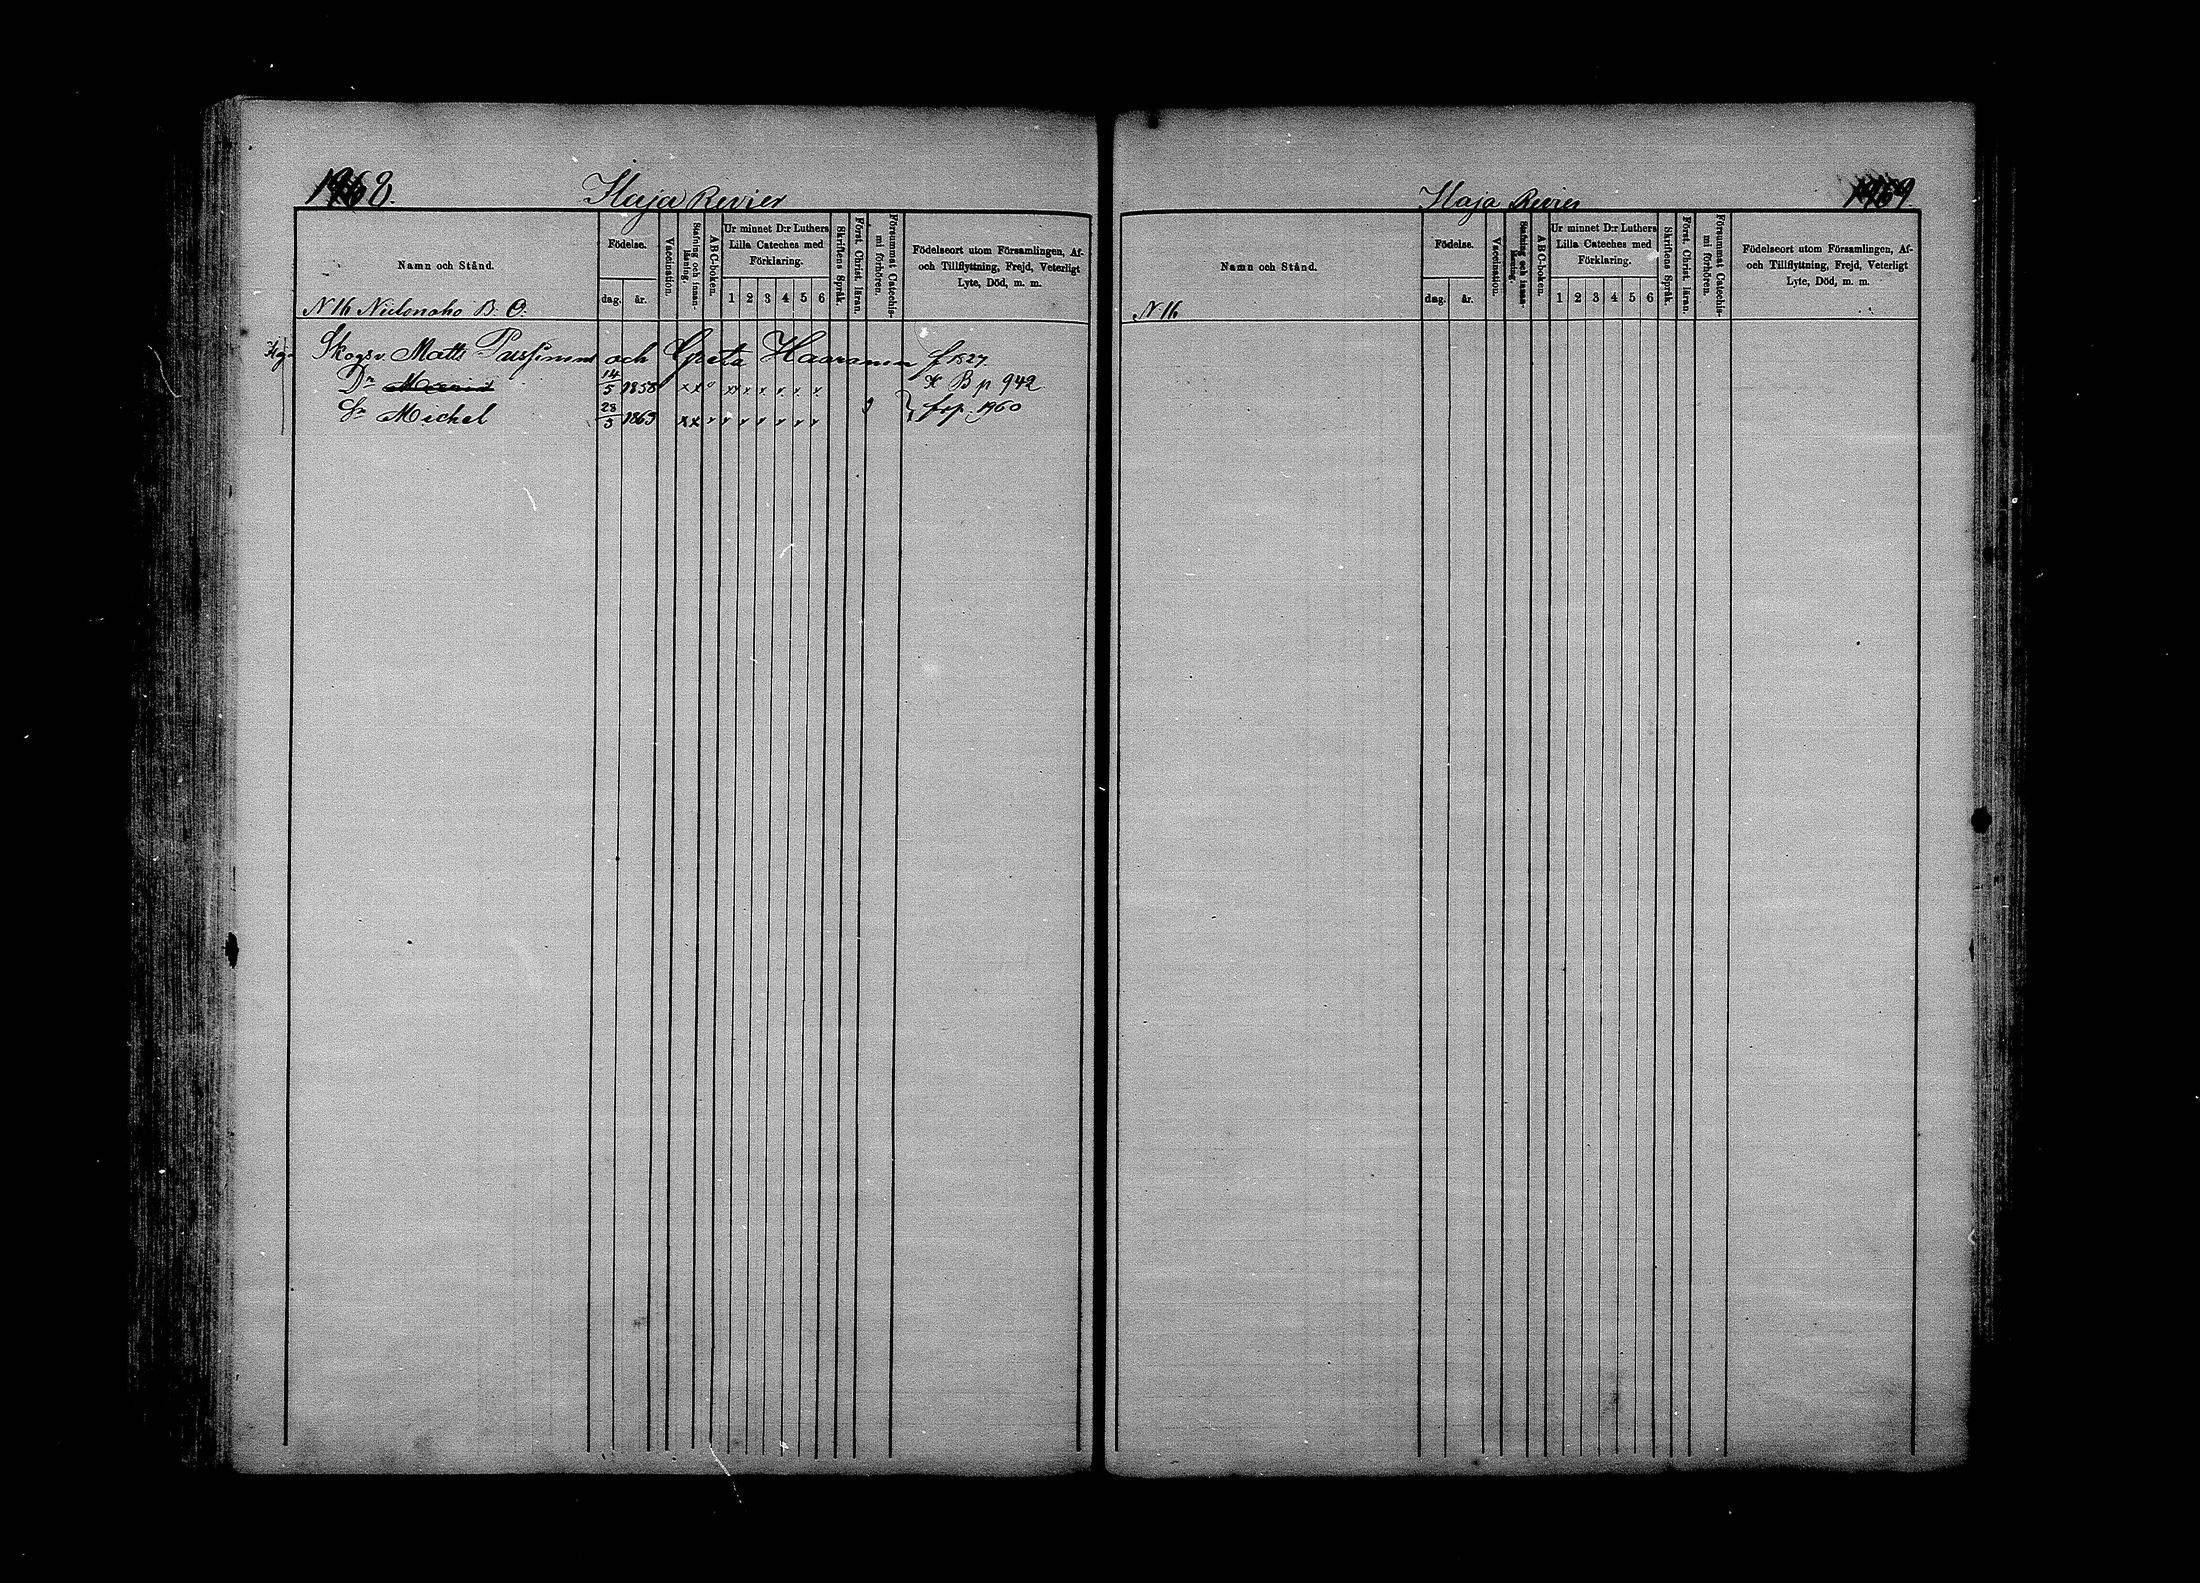 1968.
Haja Revier
Namn och Stånd.
Födelse.
dag. år.
Vaccination.
Stafning och innan-läsning.
A B C-boken.
Ur minnet D:r Luthers Lilla Cateches med Förklaring.
1 2 3 4 5 6
Skriftens Språk.
Först. Christ. läran.
Försummat Catechismi förhören.
Födelseort utom Församlingen, Af- och Tillflyttning, Frejd, Veterligt Lyte, Död, m. m.
N 16 B. O.
Skogsv Matts och Greta f 1827
Dr 14/5 1858 x x B p 942
Sr Michel 28/5 1869 x x 1960
1969
Haja Revier
Namn och Stånd.
Födelse.
dag. år.
Vaccination.
Stafning och innan-läsning.
A B C-boken.
Ur minnet D:r Luthers Lilla Cateches med Förklaring.
1 2 3 4 5 6
Skriftens Språk.
Först. Christ. läran.
Försummat Catechismi förhören.
Födelseort utom Församlingen, Af- och Tillflyttning, Frejd, Veterligt Lyte, Död, m. m.
N 16